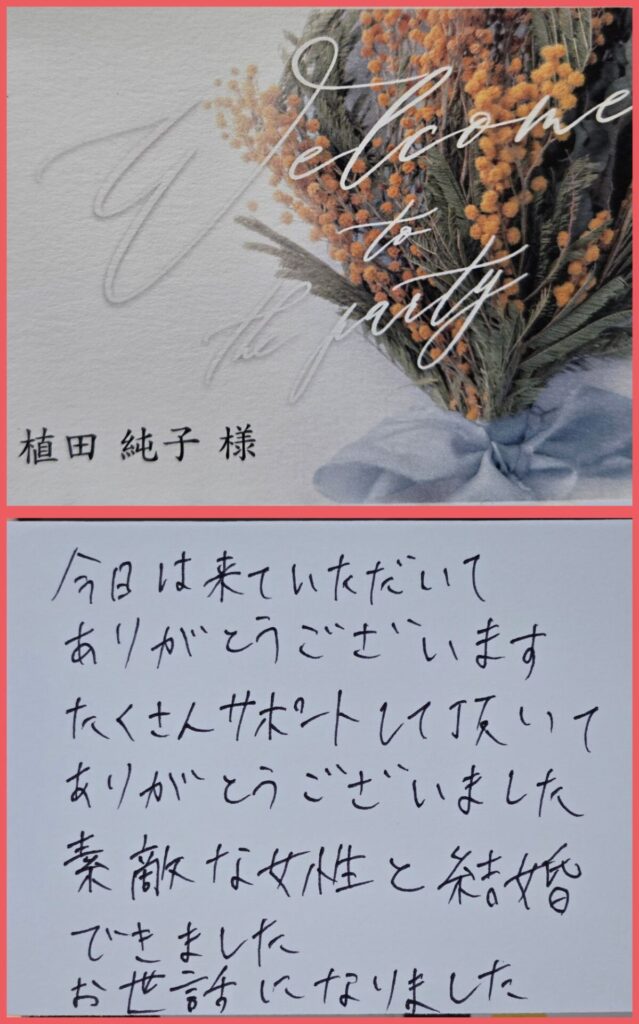 Welcome
to
the party
植田 純子 様
今日は来ていただいて
ありがとうございます
たくさんサポートして頂いて
ありがとうございました
素敵な女性と結婚
できました
お世話になりました